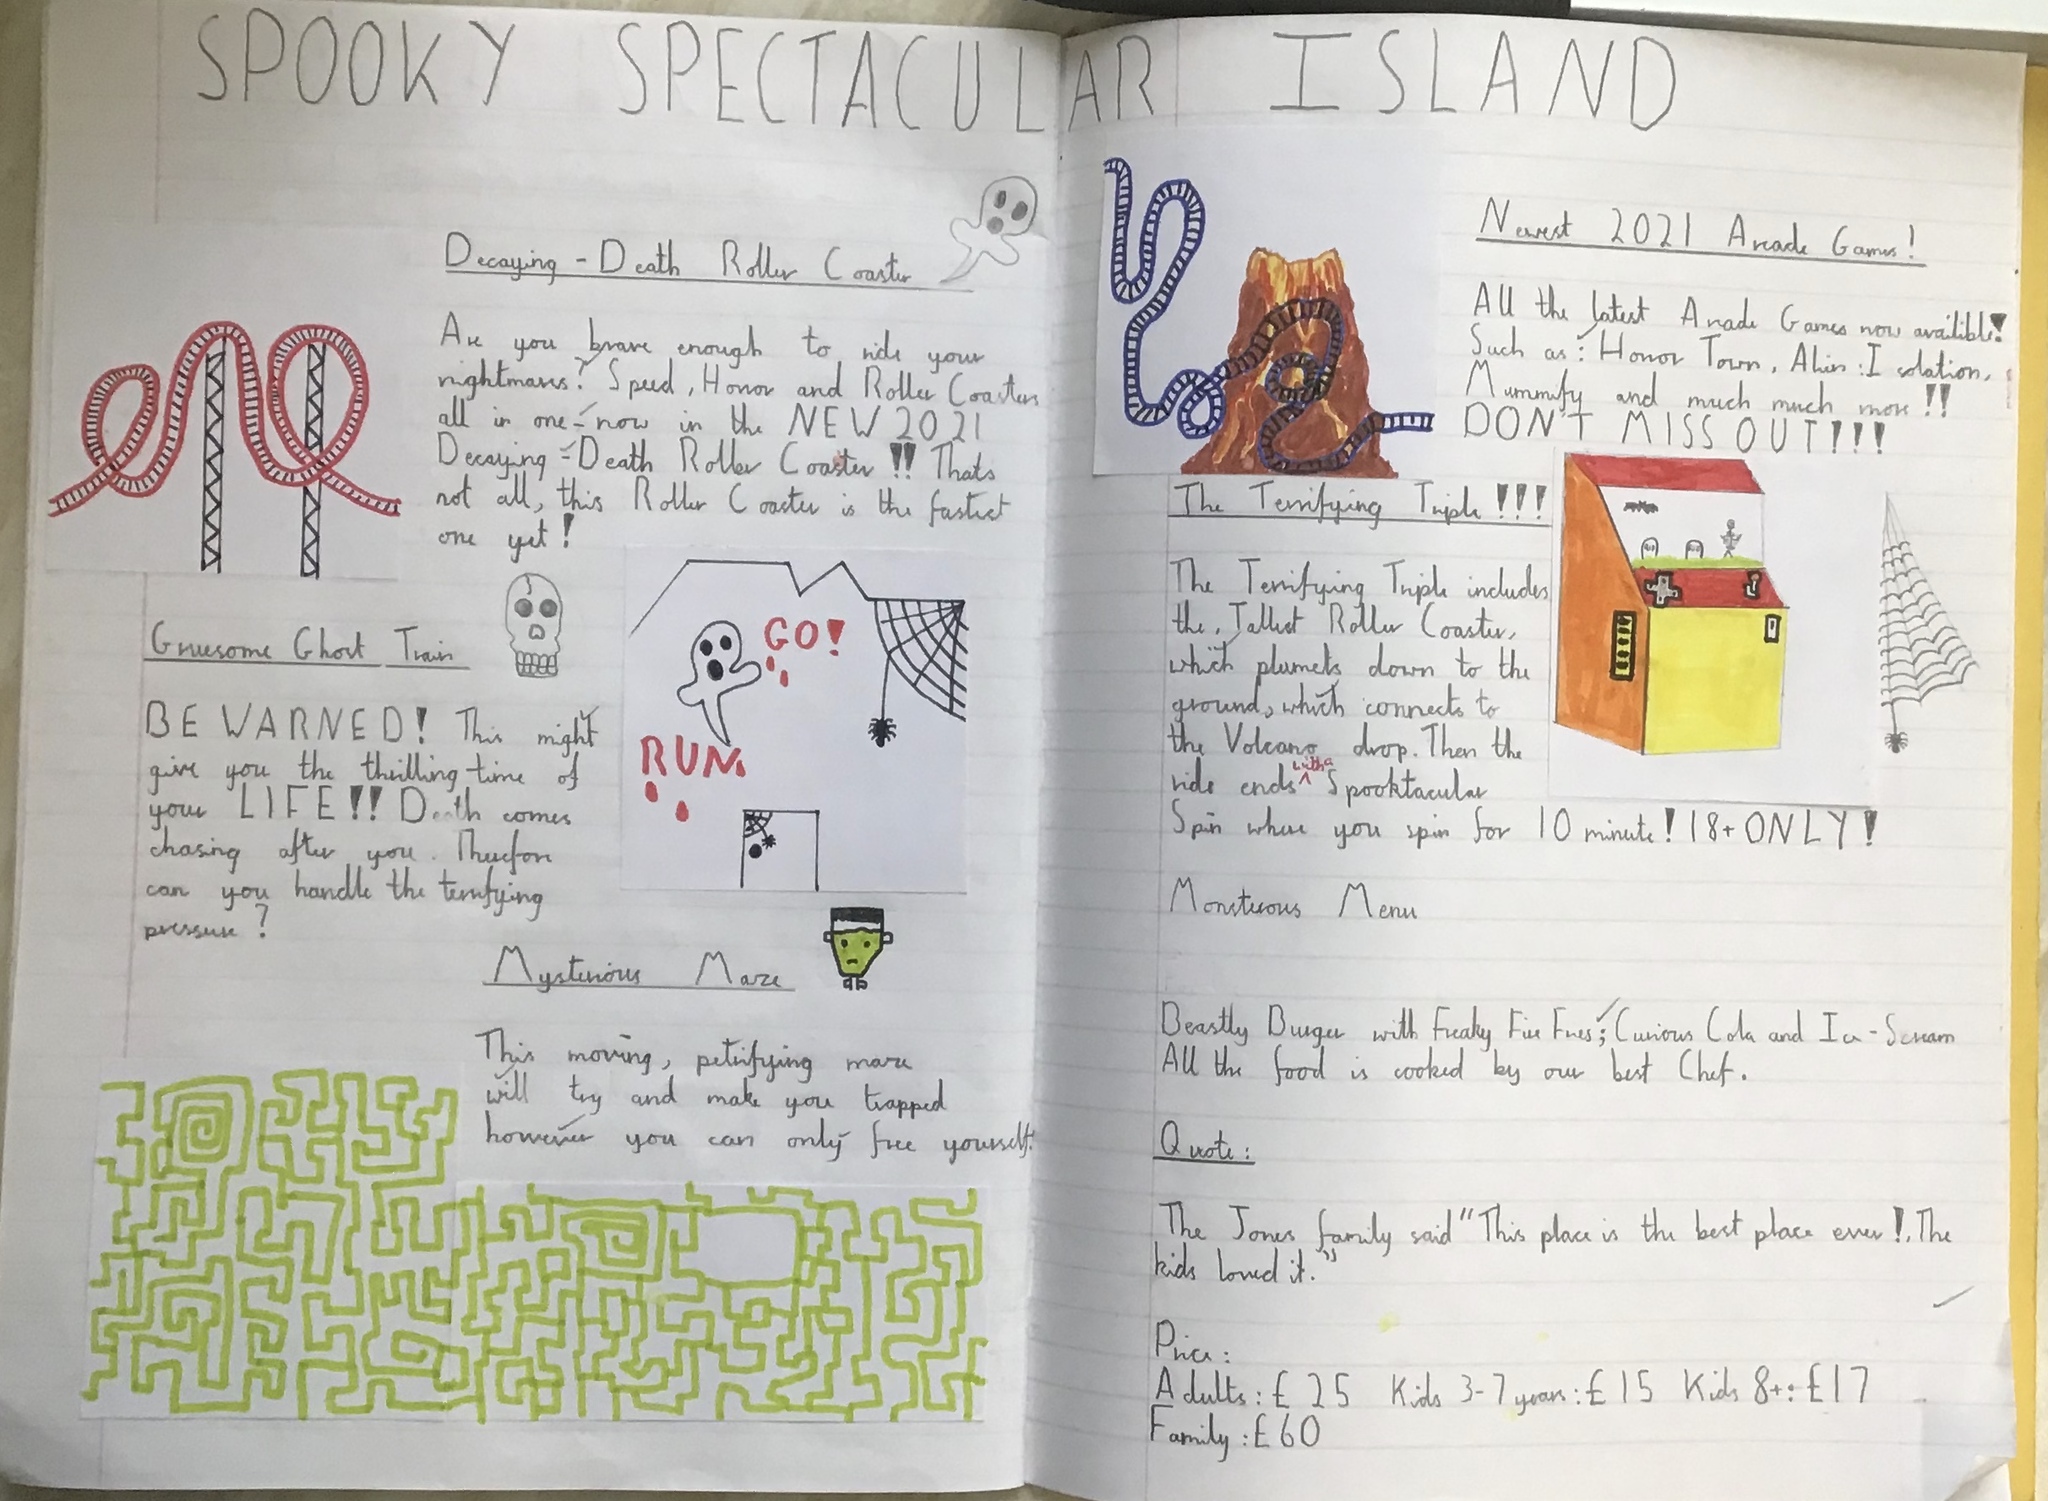 SPOOKY SPECTACULAR ISLAND
Decaying-Death Roller Coaster
Are you brave enough to ride your
nightmares? Speed, Horror and Roller Coasters
all in one-now in the NEW 2021
Decaying-Death Roller Coaster!! Thats
not all, this Roller Coaster is the fastest
one yet!
Gruesome Ghost Train
BE WARNED! This might
give you the thrilling time of
your LIFE!! Death comes
chasing after you. Therefore
can you handle the terrifying
pressure?
GO!
RUN
Mysterious Maze
This moving, petrifying maze
will try and make you trapped
however you can only free yourself.
Newest 2021 Arcade Games!
All the latest Arcade Games now availible!
Such as: Horror Town, Alien:Isolation,
Mummify and much much more!!
DON'T MISS OUT!!!
The Terrifying Triple!!!
The Terrifying Triple includes
the, Tallest Roller Coaster,
which plumets down to the
ground, which connects to
the Volcano drop. Then the
ride ends with a Spooktacular
Spin where you spin for 10 minute! 18+ ONLY!
Monsterous Menu
Beastly Burger with Freaky Fire Fries; Curious Cola and Ice-Scream
All the food is cooked by our best Chef.
Quote:
The Jones family said "This place is the best place ever!. The
kids loved it."
Price:
Adults: £25 Kids 3-7 years: £15 Kids 8+: £17
Family: £60